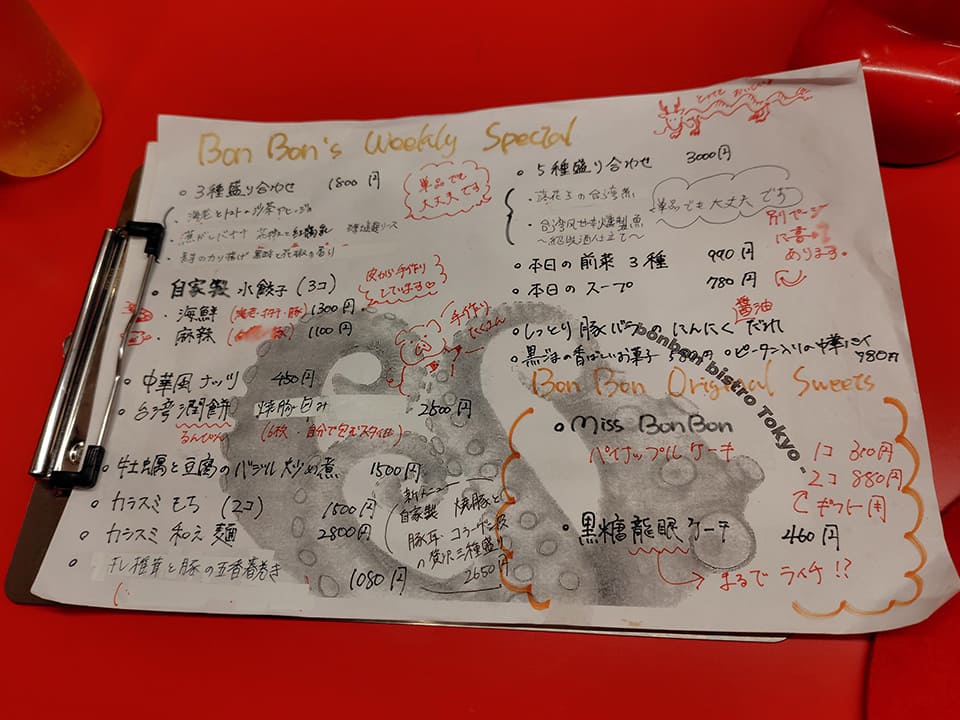 Bon Bon's Weekly Special
・3種盛り合わせ 1800円
単品でも
大丈夫です
・海老とトマトの沙茶アヒージョ
・自家製 水餃子 (3コ)
皮から手作り
しています
・海鮮 (海老・ホタテ・豚) 1300円
・麻辣 1100円
手作り
たくさん
・中華風ナッツ 450円
・台湾潤餅 焼豚包み 2500円
るんぴん
(6枚・自分で包むスタイル)
・牡蠣と豆腐のバジル炒め煮 1500円
・カラスミもち (2コ) 1500円
・カラスミ和え麺 2800円
・干し椎茸と豚の五香春巻き 1080円
新メニュー
自家製 焼豚と
豚耳・コラーゲン皮
の贅沢三種盛り
2650円
とっても おいしい
・5種盛り合わせ 3000円
単品でも大丈夫です
・台湾風
〜紹興酒仕立て〜
別ページ
あります。
・本日の前菜 3種 990円
・本日のスープ 780円
醤油
・しっとり豚バラ にんにくだれ
・黒ごまの香ばしいお菓子 580円
・ピータン入りの中華 980円
bonbon bistro Tokyo -
Bon Bon Original Sweets
・Miss BonBon
パイナップルケーキ 1コ
2コ 880円
ギフト用
・黒糖龍眼ケーキ 460円
まるでライチ!?